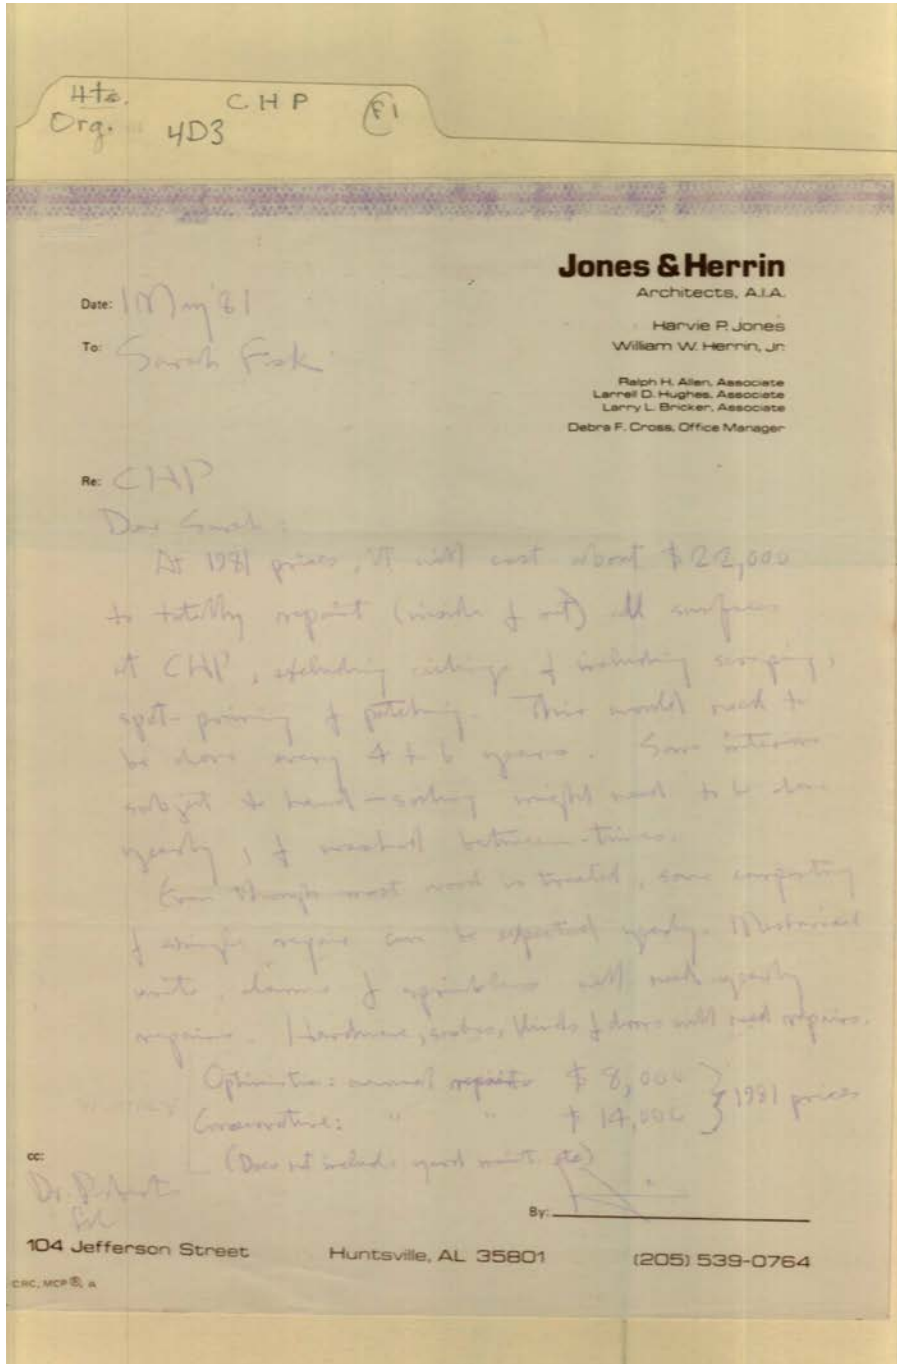 Hts. CHP F1
Org. 4D3
Jones & Herrin
Architects, A.I.A.
Harvie P. Jones
William W. Herrin, Jr.
Ralph H. Allen, Associate
Larrell D. Hughes, Associate
Larry L. Bricker, Associate
Debra F. Cross, Office Manager
Date: 1 May '81
To: Sarah Fisk
Re: CHP
Dear Sarah:
At 1981 prices, it will cost about $22,000
to totally repaint (inside & out) all surfaces
at CHP, excluding ceilings & including scraping,
spot-priming & patching. This would need to
be done every 4 to 6 years. Some interior
subject to hand-soiling might need to be done
yearly, & washed between-times.
Even though most wood is treated, some carpentry
& shingle repair can be expected yearly. Mechanical
units, & sprinklers will need yearly
repairs. Hardware, blinds & doors will need repairs.
Optimistic: annual repairs $8,000
Conservative: " " $14,000 } 1981 prices
(Does not include yard maint. etc)
cc:
Dr. Roberts
By:
104 Jefferson Street Huntsville, AL 35801 (205) 539-0764
CRC, MCP®, A